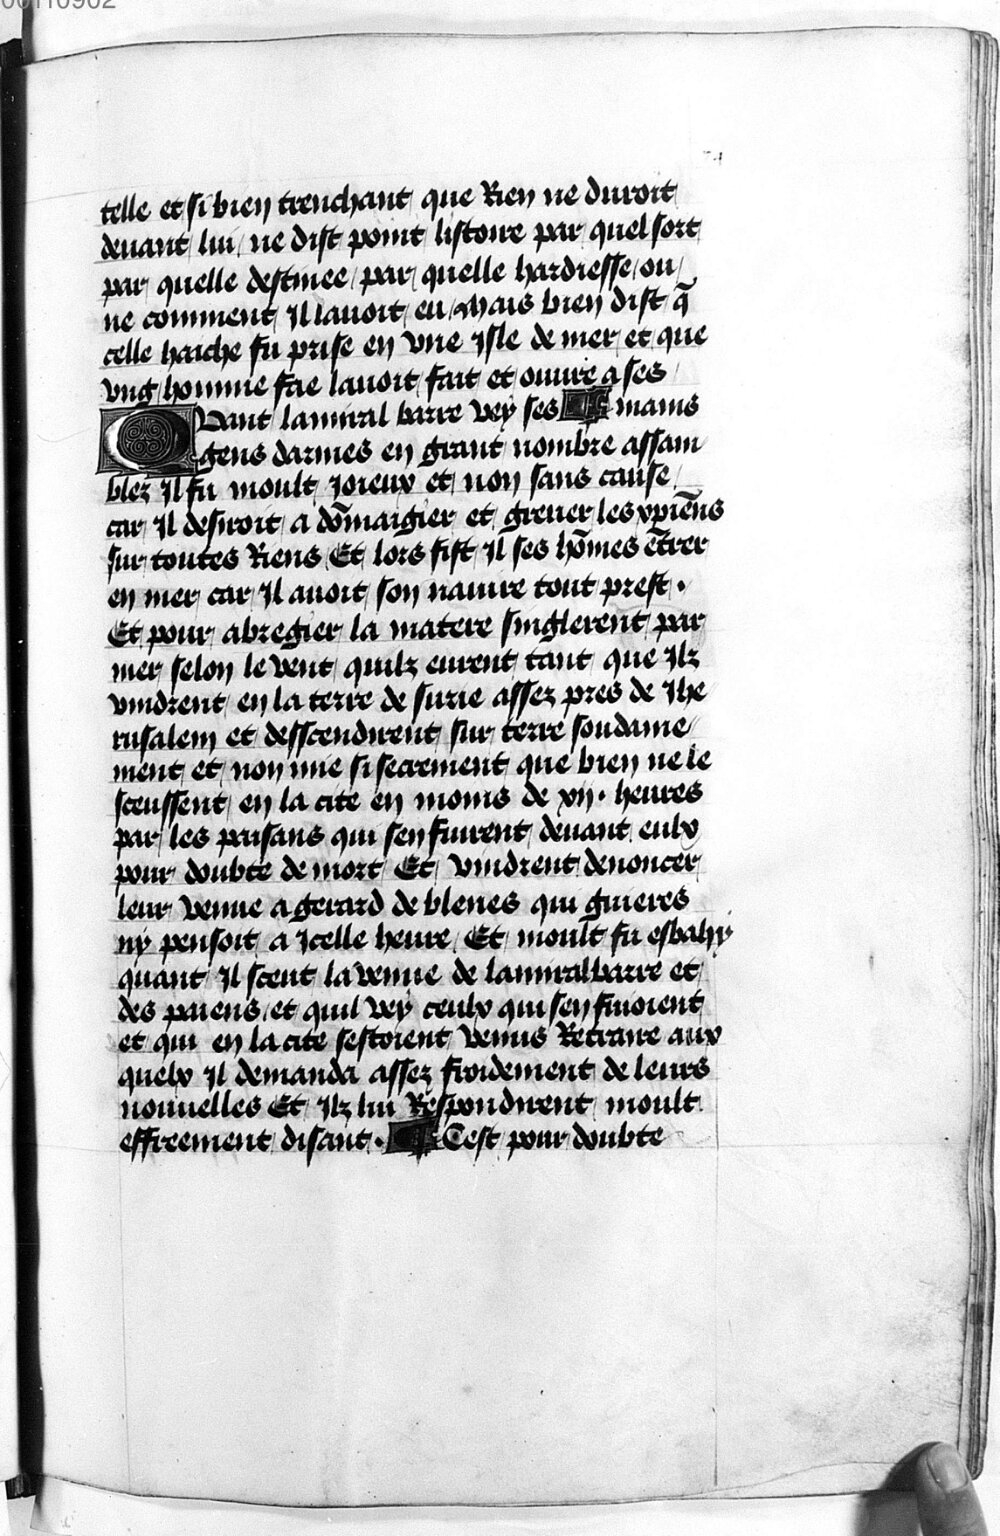 00110902
telle et si bien trenchant que Rien ne duroit
deuant lui / ne dist point listoire par quel sort
par quelle destinee / par quelle hardiesse / ou /
ne comment Il lauoit eu / Mais bien dist q̄
celle haiche fu prise en vne Isle de mer et que
vng homme fae lauoit fait et ouure a ses
Quant lamiral barre vey ses ¶ mains
gens darmes en grant nombre assam
blez Il fu moult Joieux et non sans cause
car Il desiroit a dōmaigier et greuer les xpiēns
sur toutes Riens Et lors fist Il ses hōmes ētrer
en mer car Il auoit son nauire tout prest .
Et pour abregier la matere singlerent par
mer selon le vent quilz eurent tant que Ilz
vindrent en la terre de surie assez pres de Ihe
rusalem et desscendirent sur terre soudaine
ment et non mie si secretment que bien ne le
sceussent en la cite en moins de xij . heures
par les paisans qui sen fuirent deuant eulx
pour doubte de mort Et vindrent denoncer
leur venue a gerard de blenes qui guieres
ny pensoit a Icelle heure / Et moult fu esbahy
quant Il sceut la venue de lamiral barre et
des paiens / et quil vey ceulx qui sen fuioient
et qui en la cite sestoient venus Retraire aux
quelx Il demanda assez froidement de leurs
nouuelles Et Ilz lui Respondirent moult
effreement disant . ¶ Cest pour doubte